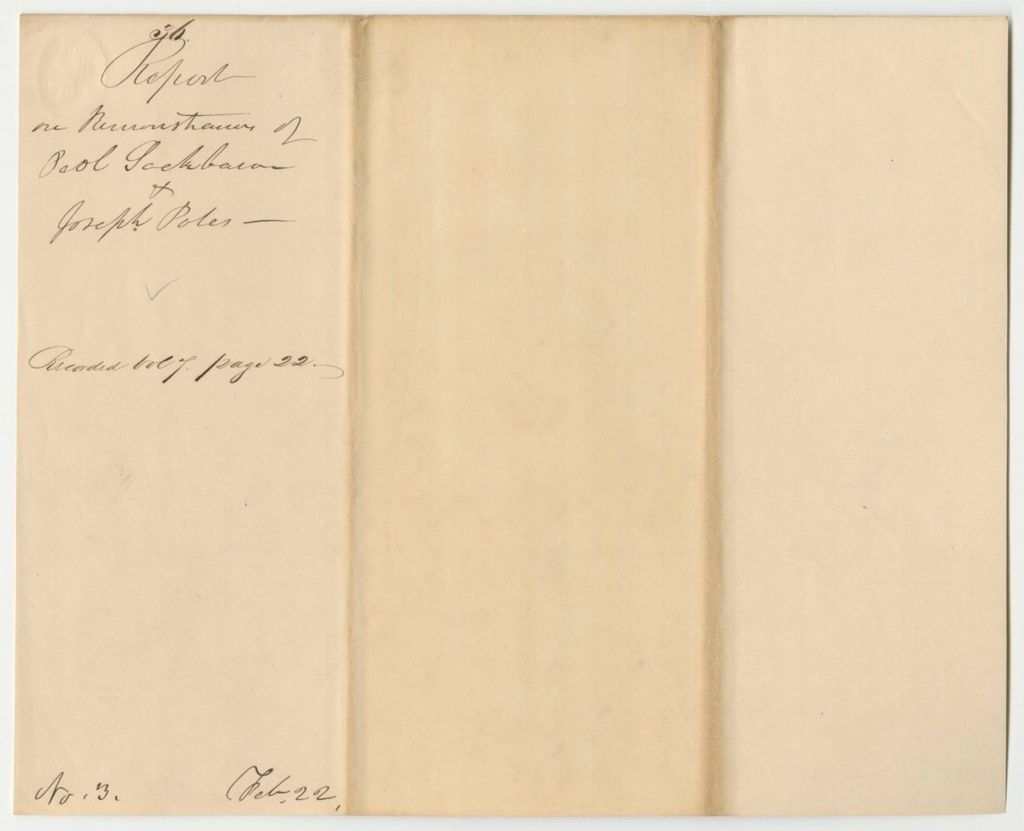 36.
Report
on Remonstrances of
Peol Sockbason
&
Joseph Poles —
Recorded Vol 7. page 22.
No. 3.
Feb. 22,